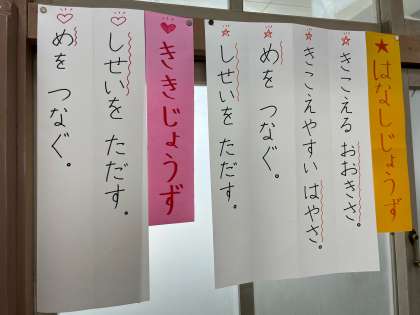 ★はなしじょうず
☆きこえる おおきさ。
☆きこえやすい はやさ。
☆めを つなぐ。
☆しせいを ただす。
♥ききじょうず
♡しせいを ただす。
♡めを つなぐ。